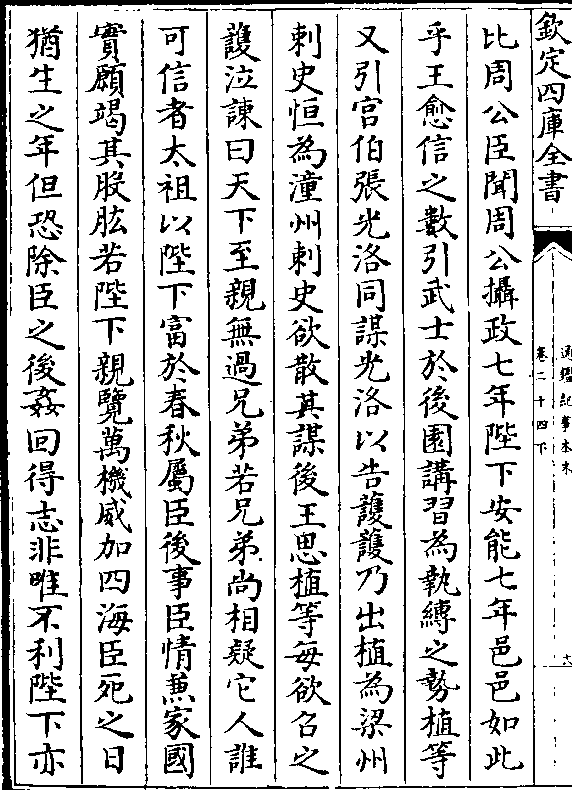 欽定四庫全書
通鑑紀事本末
卷二十四下
比周公臣聞周公攝政七年陛下安能七年邑邑如此
乎王愈信之數引武士於後園講習為執縛之勢植等
又引宫伯張光洛同謀光洛以告護護乃出植為梁州
刺史恒為潼州刺史欲散其謀後王思植等每欲召之
護泣諫曰天下至親無過兄弟若兄弟尚相疑它人誰
可信者太祖以陛下富於春秋屬臣後事臣情兼家國
實願竭其股肱若陛下親覽萬機威加四海臣死之日
猶生之年但恐除臣之後姦回得志非唯不利陛下亦